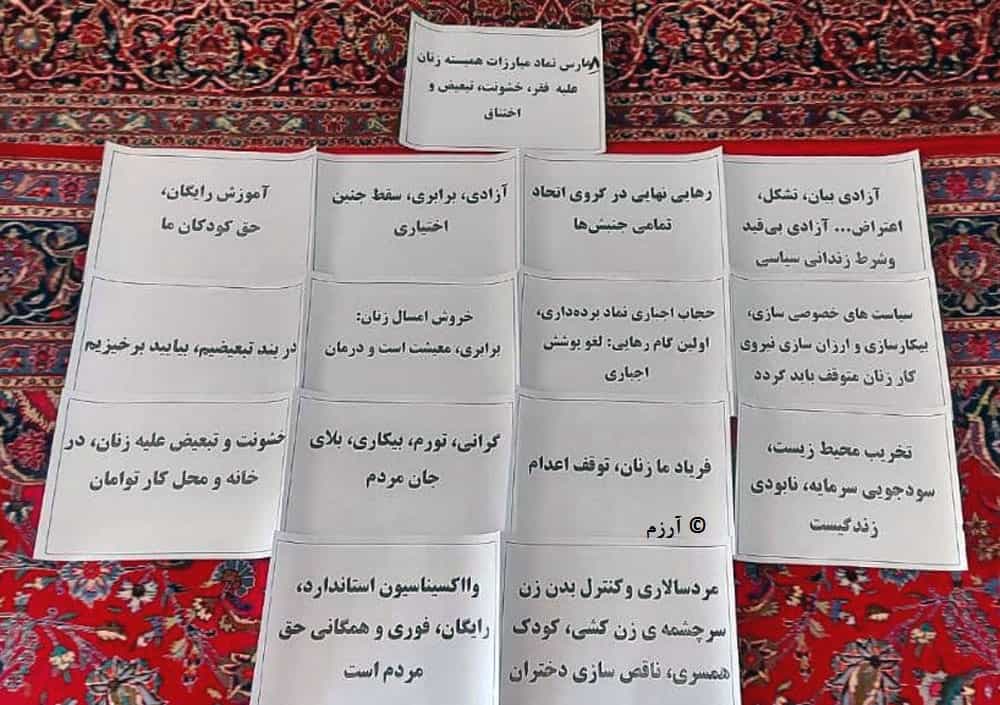 ۸مارس نماد مبارزات همیسته زنان
علیه فقر، خشونت، تبعیض و
اختناق
آزادی بیان، تشکل،
اعتراض... آزادی بی‌قید
وشرط زندانی سیاسی
رهایی نهایی در گروی اتحاد
تمامی جنبش‌ها
آزادی، برابری، سقط جنین
اختیاری
آموزش رایگان،
حق کودکان ما
سیاست های خصوصی سازی،
بیکارسازی و ارزان سازی نیروی
کار زنان متوقف باید گردد
حجاب اجباری نماد برده‌داری،
اولین گام رهایی: لغو پوشش
اجباری
خروش امسال زنان:
برابری، معیشت است و درمان
در بند تبعیضیم، بیایید برخیزیم
تخریب محیط زیست،
سودجویی سرمایه، نابودی
زندگیست
فریاد ما زنان، توقف اعدام
© آرزم
گرانی، تورم، بیکاری، بلای
جان مردم
خشونت و تبعیض علیه زنان، در
خانه و محل کار توامان
مردسالاری وکنترل بدن زن
سرچشمه ی زن کشی، کودک
همسری، ناقص سازی دختران
وااکسیناسیون استاندارد،
رایگان، فوری و همگانی حق
مردم است